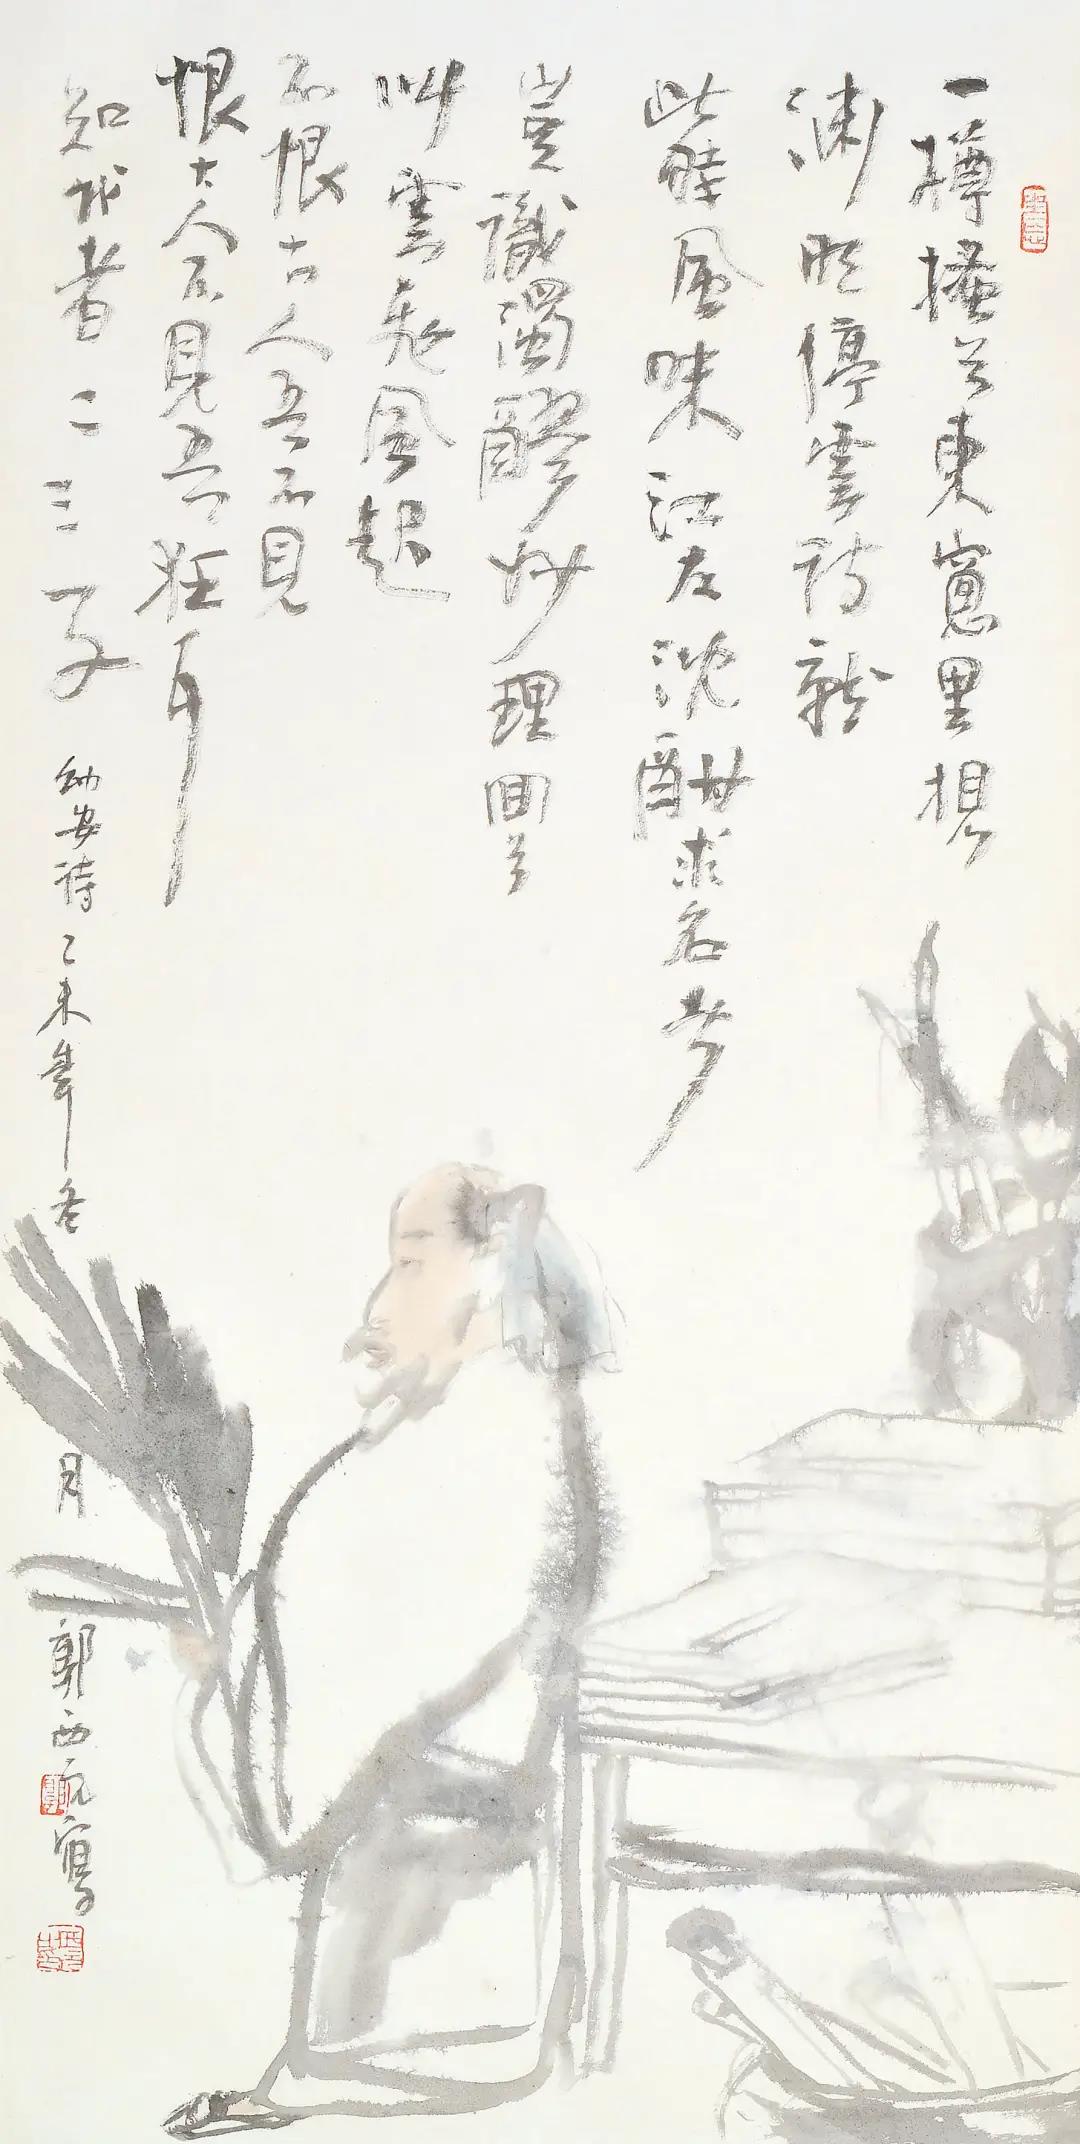 一樽搔首東窻里想
渊明停雲詩就
此時風味江左沈酣求名者
豈識濁醪妙理回首
叫雲飛風起
不恨古人吾不見
恨古人不見吾狂耳
知我者二三子 幼安詩 乙未年冬月 郭西元寫